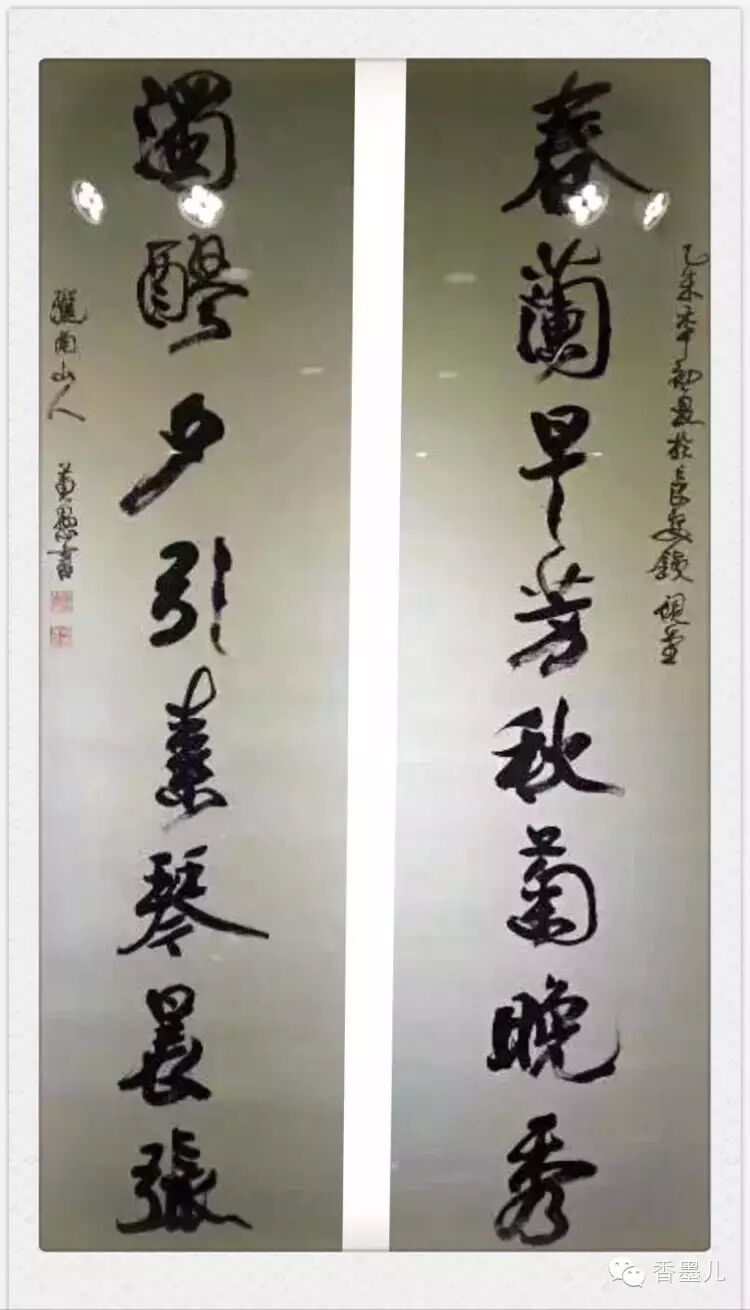 乙未年初夏於長安鐵硯堂
春蘭早芳秋菊晚秀
濁醪夕引素琴晨張
隴南山人 黃書
香墨儿